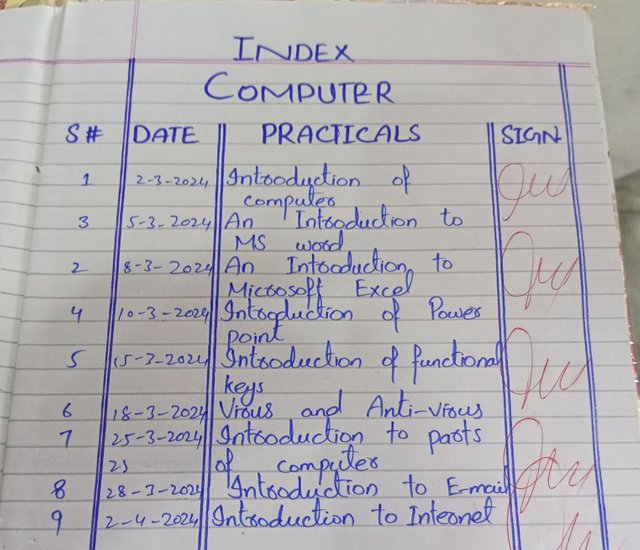 INDEX
COMPUTER
S# DATE PRACTICALS SIGN
1 2-3-2024 Introduction of
computer
3 5-3-2024 An Introduction to
MS word
2 8-3-2024 An Introduction to
Microsoft Excel
4 10-3-2024 Introduction of Power
point
5 15-3-2024 Introduction of functional
keys
6 18-3-2024 Virus and Anti-virus
7 25-3-2024 Introduction to parts
25 of computer
8 28-3-2024 Introduction to E-mail
9 2-4-2024 Introduction to Internet